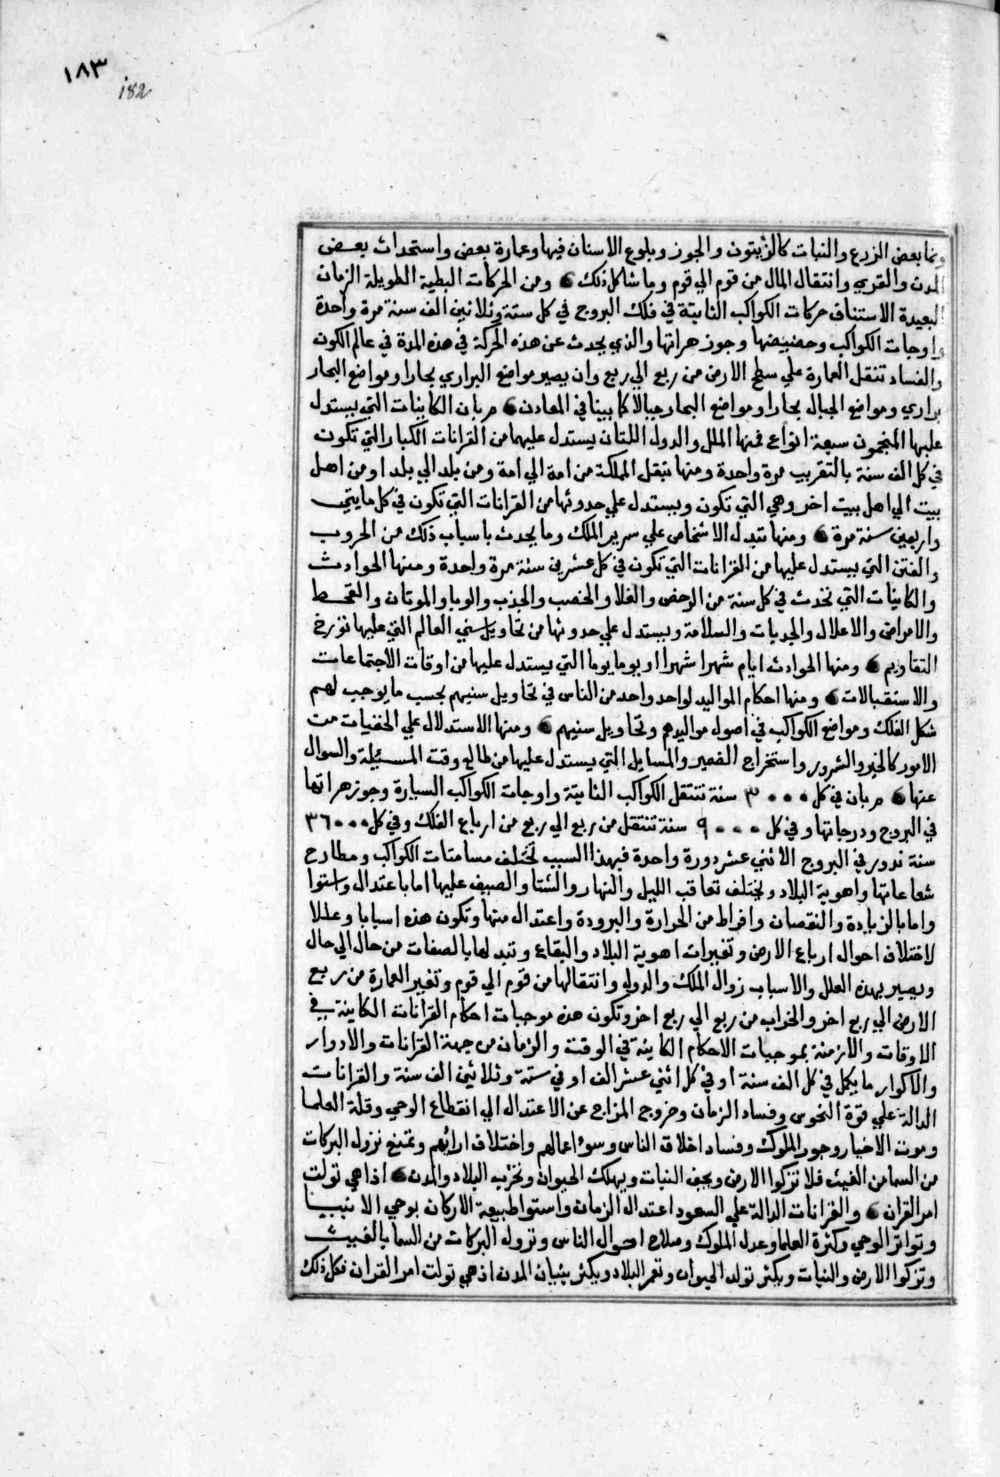 ١٨٣
182
ونما بعض الزرع والنبات كالزيتون والجوز وبلوع الاسنان فيها وعمارة بعض واستحداث بعض
المدن والقري وانتقال المال من قوم الي قوم وما شاكل ذلك ومن الحركات البطية الطويلة الزمان
البعيدة الاستناف حركات الكواكب الثابتة في فلك البروج في كل ستة وثلاثين الف سنة مرة واحدة
واوجات الكواكب وحضيضها وجوزهراتها والذي يحدث عن هذه الحركة في هذه المدة في عالم الكون
والفساد تنقل العمارة علي سطح الارض من ربع الي ربع وان يصير مواضع البراري بحارا ومواضع البحار
براري ومواضع الجبال بحارا ومواضع البحار جبالا كما بينا في المعادن مربان الكاينات التي يستدل
عليها المنجمون سبعة انواع فمنها الملل والدول اللتان يستدل عليهما من القرانات الكبار التي تكون
في كل الف سنة بالتقريب مرة واحدة ومنها تنقل المملكة من امة الي امة ومن بلد الي بلد او من اهل
بيت الي اهل بيت اخر وهي التي تكون ويستدل علي حدوثها من القرانات التي تكون في كل مايتي
واربعين سنة مرة ومنها تبدل الاشخاص علي سرير الملك وما يحدث باسباب ذلك من الحروب
والفتن التي يستدل عليها من القرانات التي تكون في كل عشرين سنة مرة واحدة ومنها الحوادث
والكاينات التي تحدث في كل سنة من الرخص والغلا والخصب والجذب والوبا والموتان والقحط
والامراض والاعلال والجدبات والسلامة ويستدل علي حدوثها من تحاويل سني العالم التي عليها نورخ
التقاويم ومنها الحوادث ايام شهرا شهرا او يوما يوما التي يستدل عليها من اوقات الاجتماعات
والاستقبالات ومنها احكام المواليد لواحد واحد من الناس في تحاويل سنيهم بحسب ما يوجب لهم
شكل الفلك ومواضع الكواكب في اصول مواليدهم وتحاويل سنيهم ومنها الاستدلال علي الخفيات من
الامور كالخبو والشرور واستخراج الضمير والمسايل التي يستدل عليها من طالع وقت المسئلة والسوال
عنها مربان في كل ٣٠٠٠ سنة تنتقل الكواكب الثابتة واوجات الكواكب السيارة وجوزهراتها
في البروج ودرجاتها وفي كل ٩٠٠٠ سنة تنتقل من ربع الي ربع من ارباع الفلك وفي كل ٣٦٠٠٠
سنة تدور في البروج الاثني عشر دورة واحدة فبهذا السبب تختلف مسامتات الكواكب ومطارح
شعاعاتها واهوية البلاد ويختلف تعاقب الليل والنهار والشتا والصيف عليها اما باعتدال واستوا
واما بالزيادة والنقصان وافراط من الحرارة والبرودة واعتدال منها وتكون هذه اسبابا وعللا
لاختلاف احوال ارباع الارض وتغييرات اهوية البلاد والبقاع وتبدلها بالصفات من حال الي حال
ويصير بهذه العلل والاسباب زوال الملك والدول وانتقالها من قوم الي قوم وتغير العمارة من ربع
الارض الي ربع اخر والخراب من ربع الي ربع اخر وتكون هذه موجبات احكام القرانات الكاينة في
الاوقات والازمنة بموجبات الاحكام الكاينة في الوقت والزمان من جهة القرانات والادوار
والاكوار ما يكمل في كل الف سنة او في كل اثني عشر الف او في ستة وثلاثين الف سنة والقرانات
الدالة علي قوة النحوس وفساد الزمان وخروج المزاج عن الاعتدال الي انقطاع الوحي وقلة العلما
وموت الاخيار وجور الملوك وفساد اخلاق الناس وسوء اعمالهم واختلاف ارائهم وتمنع نزول البركات
من السما من الغيث فلا تزكوا الارض ويجف النبات ويهلك الحيوان وتخرب البلاد والمدن اذا هي تولت
امر القران والقرانات الدالة علي السعود اعتدال الزمان واستوا طبيعة الاركان بوحي الانبيا
وتواتر الوحي وكثرة العلما وعدل الملوك وصلاح احوال الناس ونزول البركات من السما بالغيث
وتزكوا الارض والنبات ويكثر تولد الحيوان وتعمر البلاد ويكثر بنيان المدن اذ هي تولت امر القران فكل ذلك